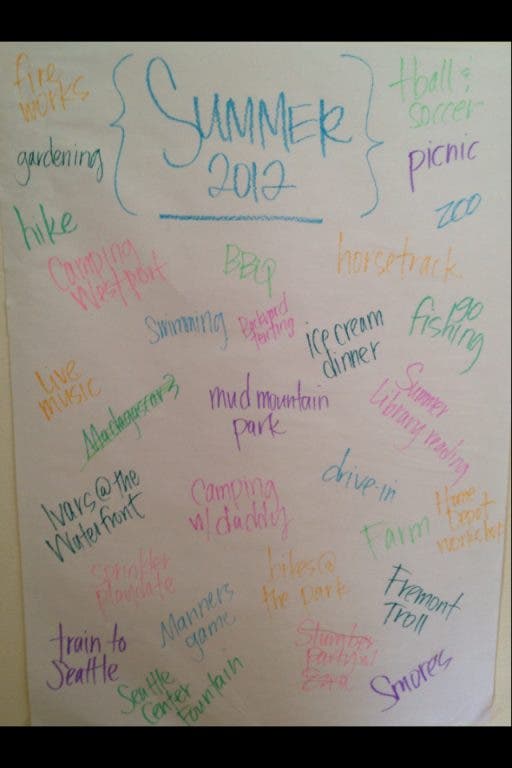 fire
works
SUMMER
2012
tball &
soccer
gardening
picnic
zoo
hike
Camping
Westport
BBQ
horsetrack
Swimming
Backyard
tenting
ice cream
dinner
go
fishing
live
music
Madagascar 3
mud mountain
park
Summer
library reading
Ivars @ the
Waterfront
Camping
w/ daddy
drive-in
Farm
Home
Depot
workshop
Sprinkler
playdate
Manners
game
bikes @
the park
Fremont
Troll
train to
Seattle
Seattle
Center
Fountain
Slumber
Party w/
Smores